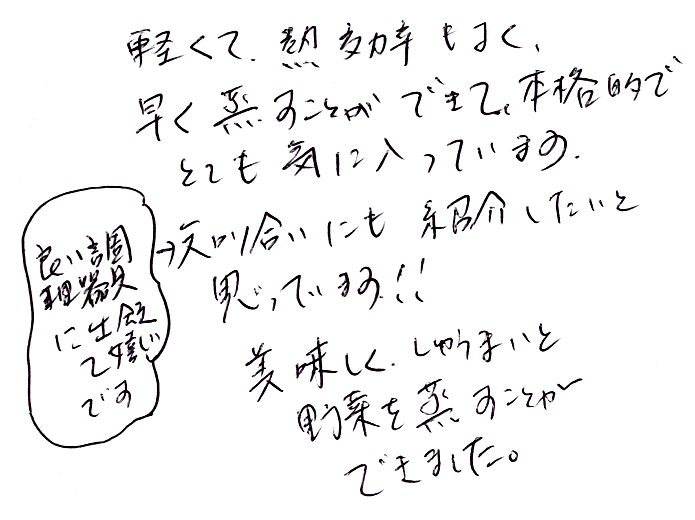 軽くて、熱効率もよく、
早く蒸すことができて、本格的で
とても気に入っています。
良い調
理器具
に出会え
て嬉しい
です
→知り合いにも紹介したいと
思っています!!
美味しく、しゅうまいと
野菜を蒸すことが
できました。